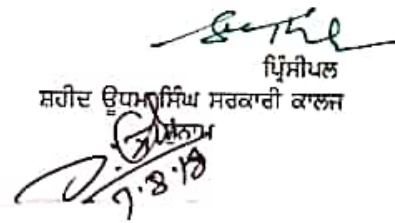 ਪ੍ਰਿੰਸੀਪਲ
ਸ਼ਹੀਦ ਊਧਮ ਸਿੰਘ ਸਰਕਾਰੀ ਕਾਲਜ
ਸੁਨਾਮ
7.8.18